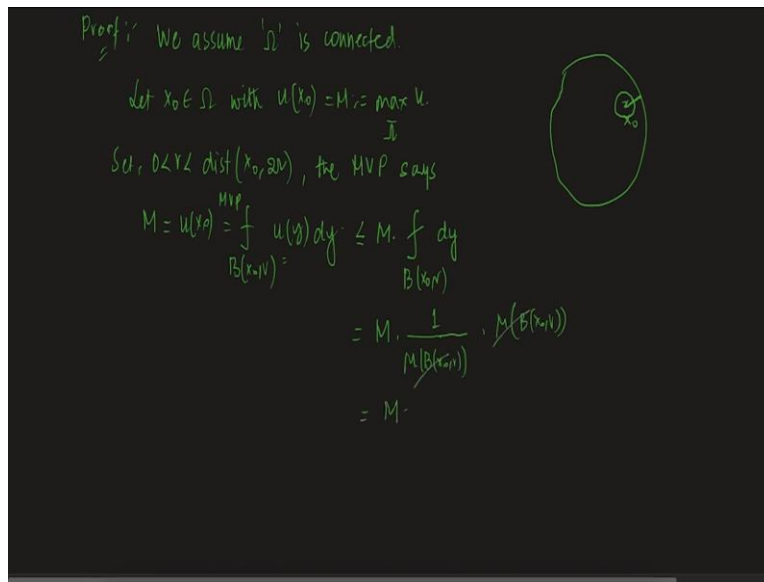 Proof:- We assume 'Ω' is connected.
Let x₀ ∈ Ω with u(x₀) = M := max u.
Ω̄
Set, 0<r< dist(x₀, ∂Ω), the MVP says
MVP
M = u(x₀) = ⨍ u(y) dy ≤ M. ⨍ dy
B(x₀,r) B(x₀,r)
= M. 1/μ(B(x₀,r)) . μ(B(x₀,r))
= M.
x₀